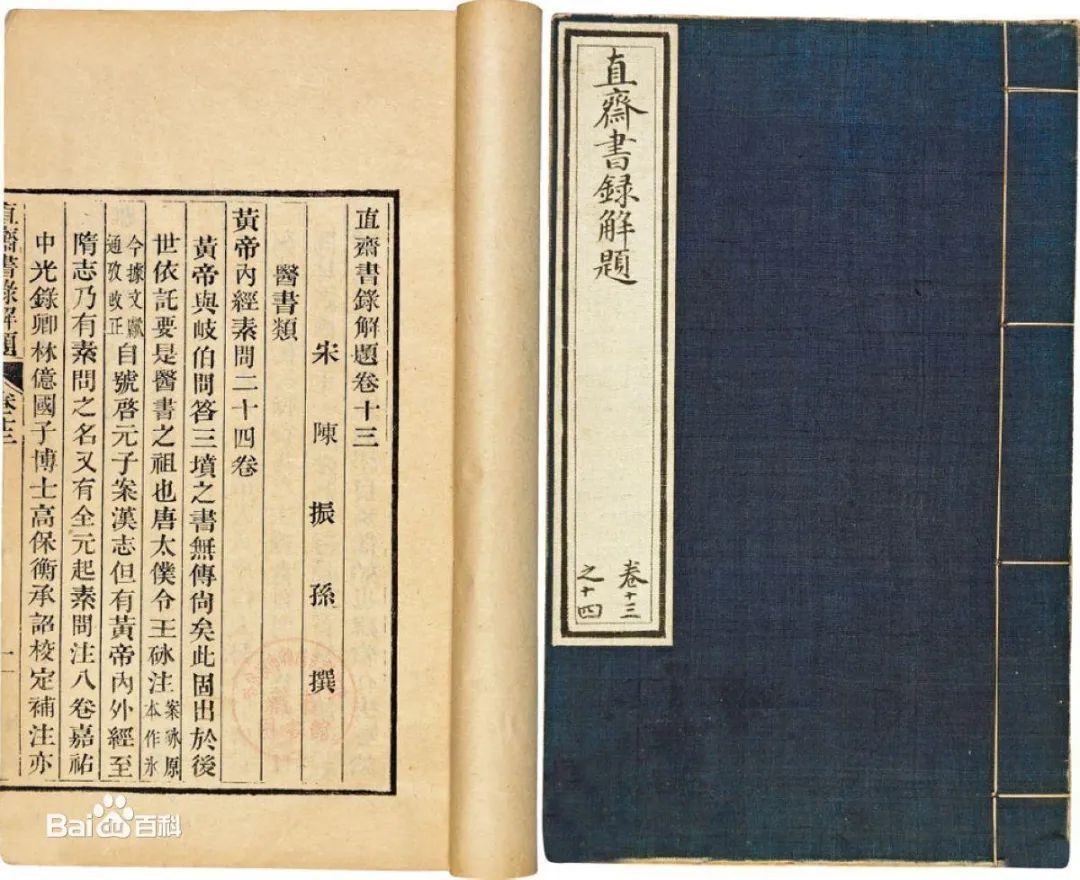 直齋書錄解題卷十三
宋 陳 振 孫 撰
醫書類
黃帝內經素問二十四卷
黃帝與岐伯問答三墳之書無傳尙矣此固出於後
世依託要是醫書之祖也唐太僕令王砅注案砅原本作氷
今據文獻通攷改正自號啓元子案漢志但有黃帝內外經至
隋志乃有素問之名又有全元起素問注八卷嘉祐
中光錄卿林億國子博士高保衡承詔校定補注亦
直齋書錄解題
卷十三
一
直齋書録解題
卷十三
之十四
Baidu百科